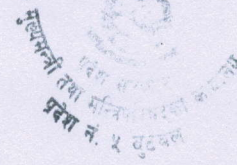 प्रदेश सरकार
मुख्यमन्त्री तथा मन्त्रिपरिषदको कार्यालय
प्रदेश नं. ५ बुटवल